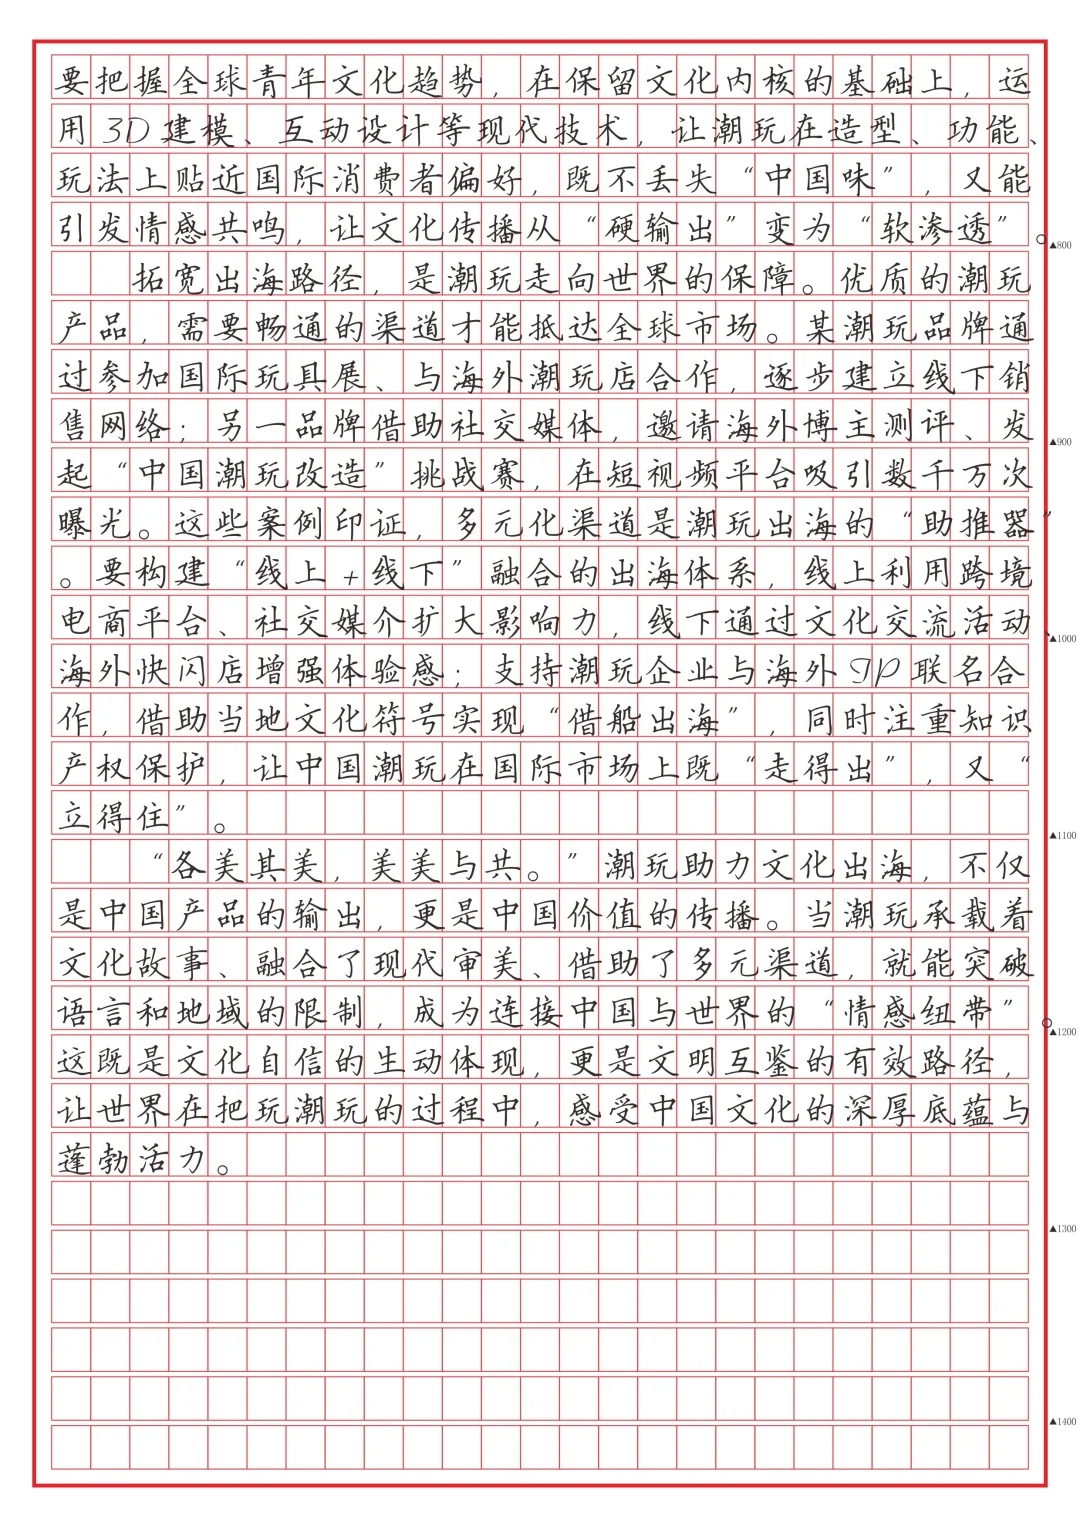 要把握全球青年文化趋势，在保留文化内核的基础上，运
用3D建模、互动设计等现代技术，让潮玩在造型、功能、
玩法上贴近国际消费者偏好，既不丢失“中国味”，又能
引发情感共鸣，让文化传播从“硬输出”变为“软渗透”。
▲800
拓宽出海路径，是潮玩走向世界的保障。优质的潮玩
产品，需要畅通的渠道才能抵达全球市场。某潮玩品牌通
过参加国际玩具展、与海外潮玩店合作，逐步建立线下销
售网络；另一品牌借助社交媒体，邀请海外博主测评、发
▲900
起“中国潮玩改造”挑战赛，在短视频平台吸引数千万次
曝光。这些案例印证，多元化渠道是潮玩出海的“助推器”
。要构建“线上+线下”融合的出海体系，线上利用跨境
电商平台、社交媒介扩大影响力，线下通过文化交流活动、
▲1000
海外快闪店增强体验感；支持潮玩企业与海外IP联名合
作，借助当地文化符号实现“借船出海”，同时注重知识
产权保护，让中国潮玩在国际市场上既“走得出”，又“
立得住”。
▲1100
“各美其美，美美与共。”潮玩助力文化出海，不仅
是中国产品的输出，更是中国价值的传播。当潮玩承载着
文化故事、融合了现代审美、借助了多元渠道，就能突破
语言和地域的限制，成为连接中国与世界的“情感纽带”。
▲1200
这既是文化自信的生动体现，更是文明互鉴的有效路径，
让世界在把玩潮玩的过程中，感受中国文化的深厚底蕴与
蓬勃活力。
▲1300
▲1400